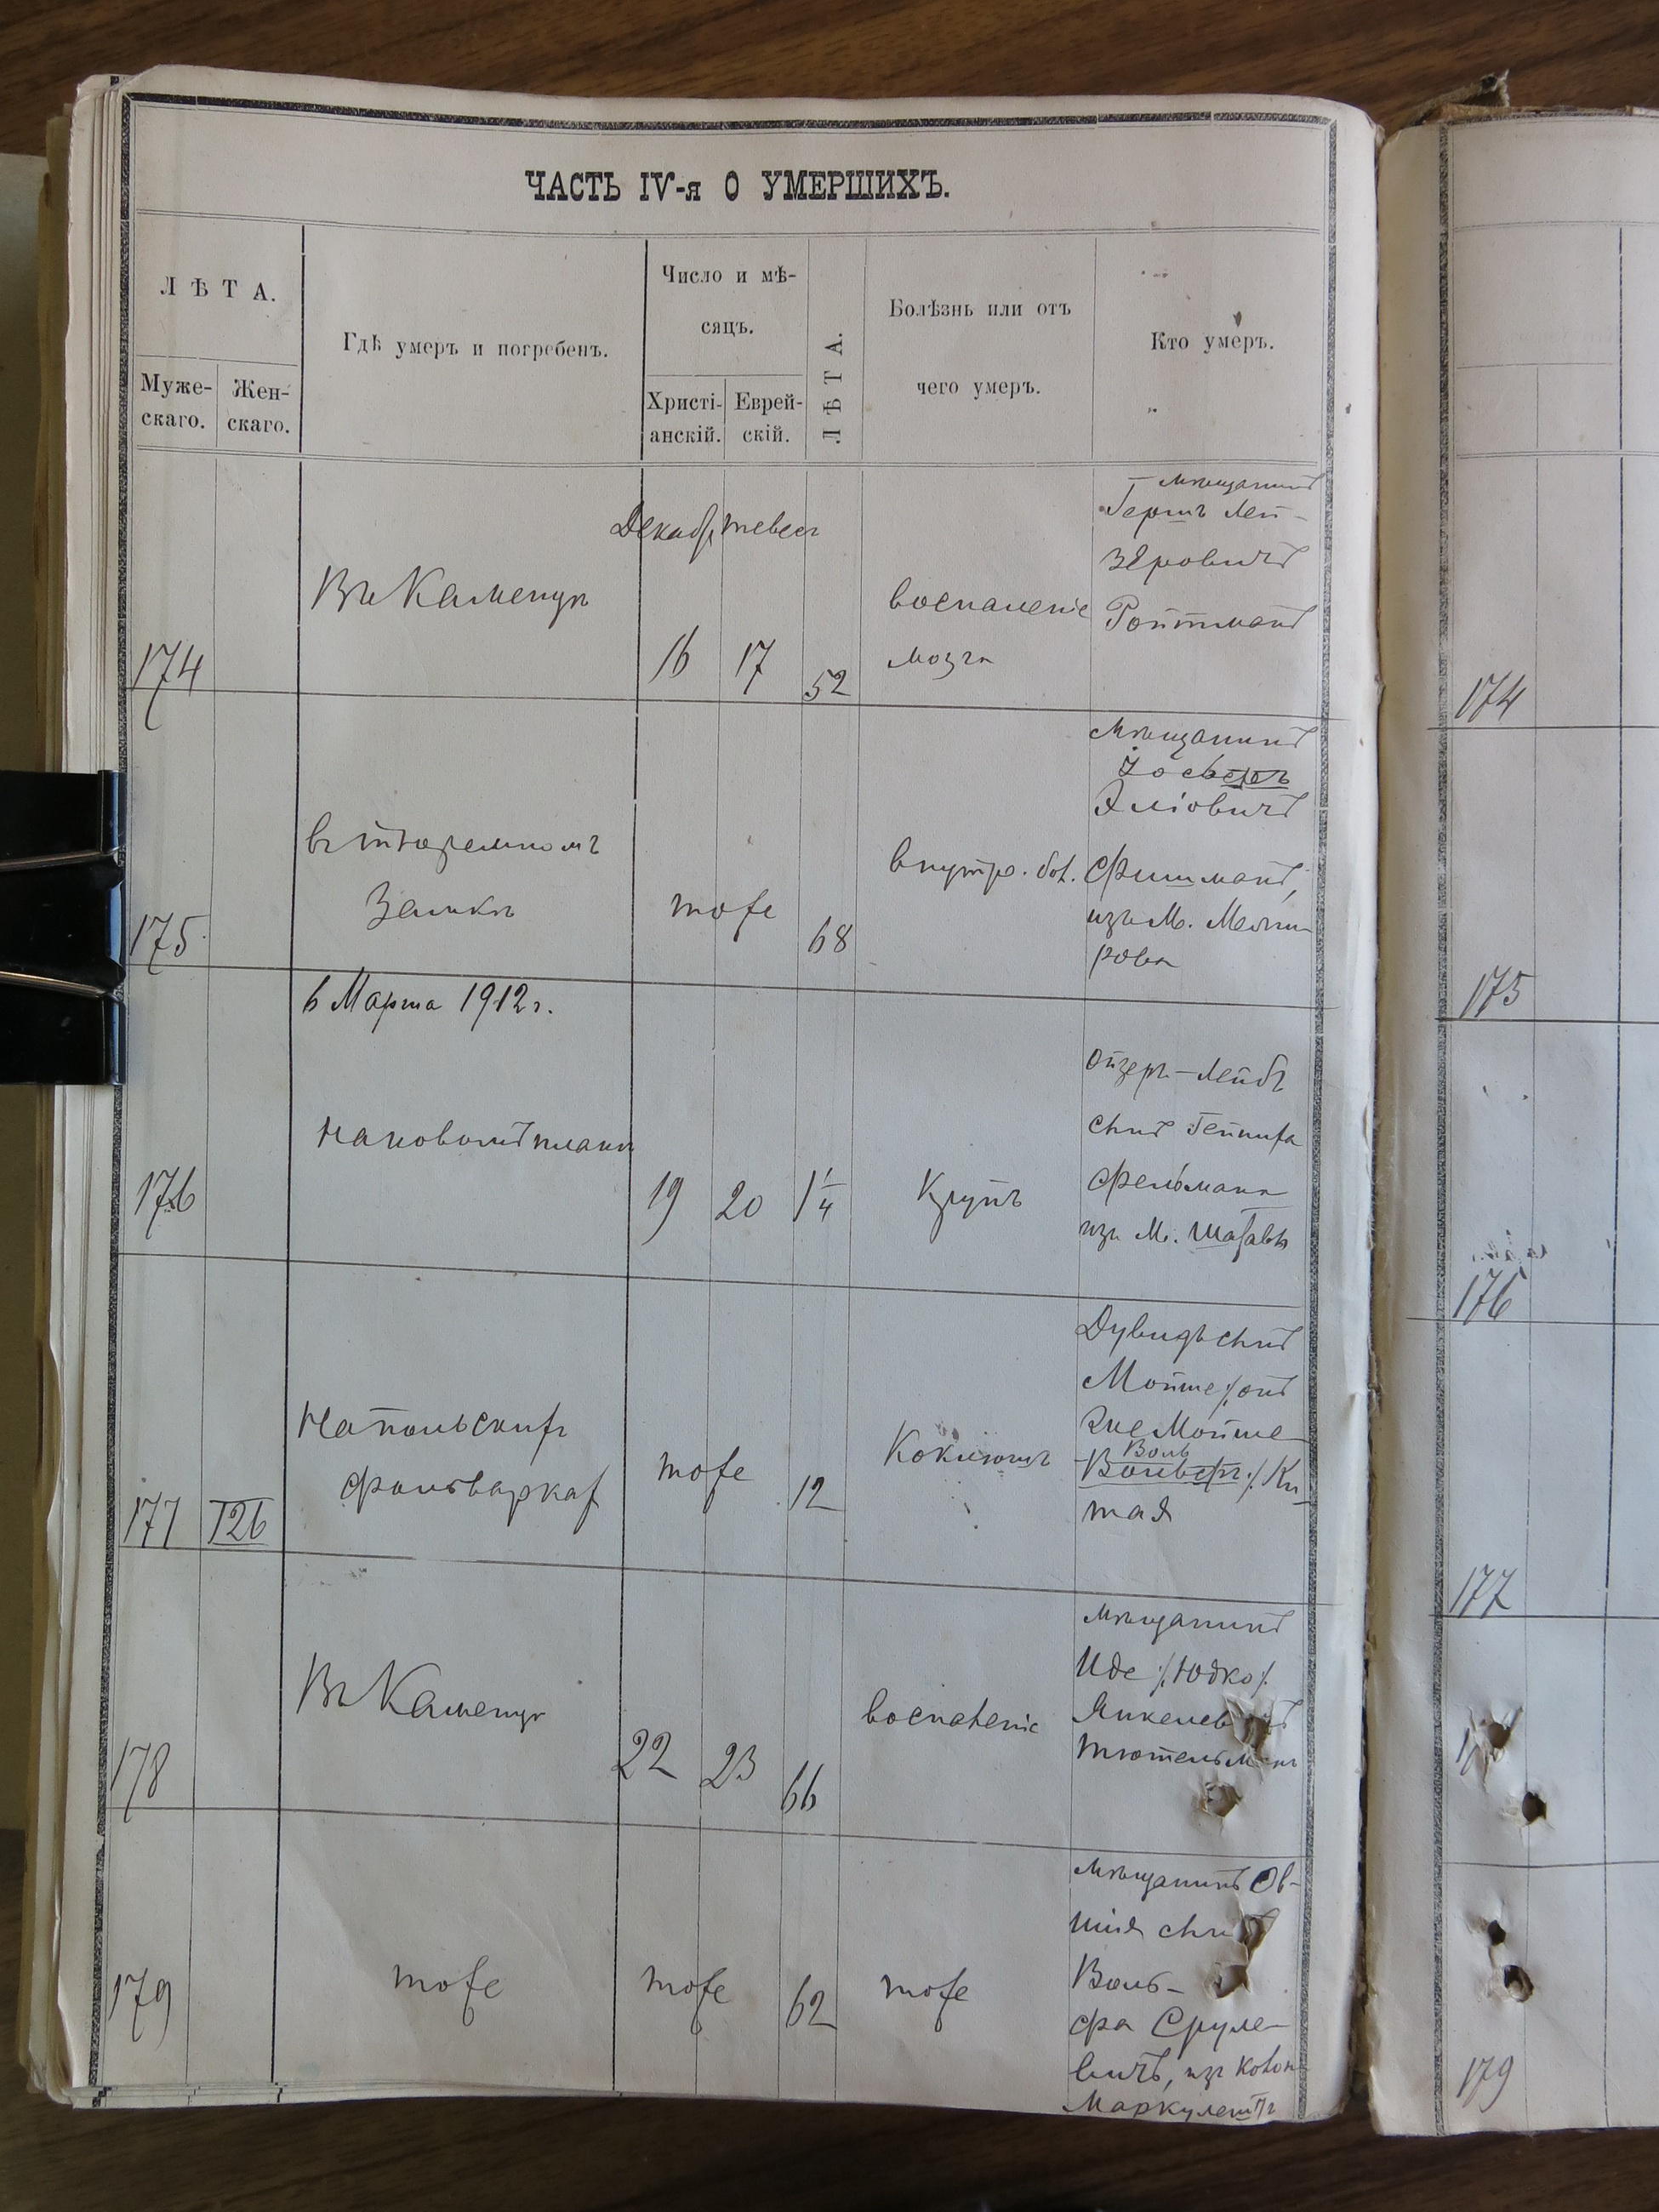 ЧАСТЬ IV-я О УМЕРШИХЪ.
ЛѢТА.
Муже-
скаго.
Жен-
скаго.
Гдѣ умеръ и погребенъ.
Число и мѣ-
сяцъ.
Христі-
анскій.
Еврей-
скій.
ЛѢТА.
Болѣзнь или отъ
чего умеръ.
Кто умеръ.
174
Въ Каменцѣ
Декабр
тевес
16
17
52
воспаленіе
мозга
мѣщанинъ
Гершъ Лей-
зеровичъ
Ройтманъ
174
175
въ тюремномъ
Замкѣ
тоже
68
внутр. бол.
мѣщанинъ
Эліовичъ
Фишманъ,
изъ М.
рова
175
6 Марта 1912 г.
176
на новомъ планѣ
19
20
1 1/4
Крупъ
Ойзеръ-Лейбъ
сынъ Гейниха
Фельмана
изъ М. Шатавы
176
177
126
На польскихъ
фольваркахъ
тоже
12
Коклюшъ
Дувидъ сынъ
Мойше /: онъ
же Мойше
Воль
Вольфъ :/ Ки-
тая
177
178
Въ Каменцѣ
22
23
66
воспаленіе
мѣщанинъ
Иде /: Юдко :/
Тютельманъ
179
тоже
тоже
62
тоже
мѣщанинъ Ов-
шія сынъ
Воль-
фа Сруле-
вичъ, изъ Колон
Маркулештъ
179